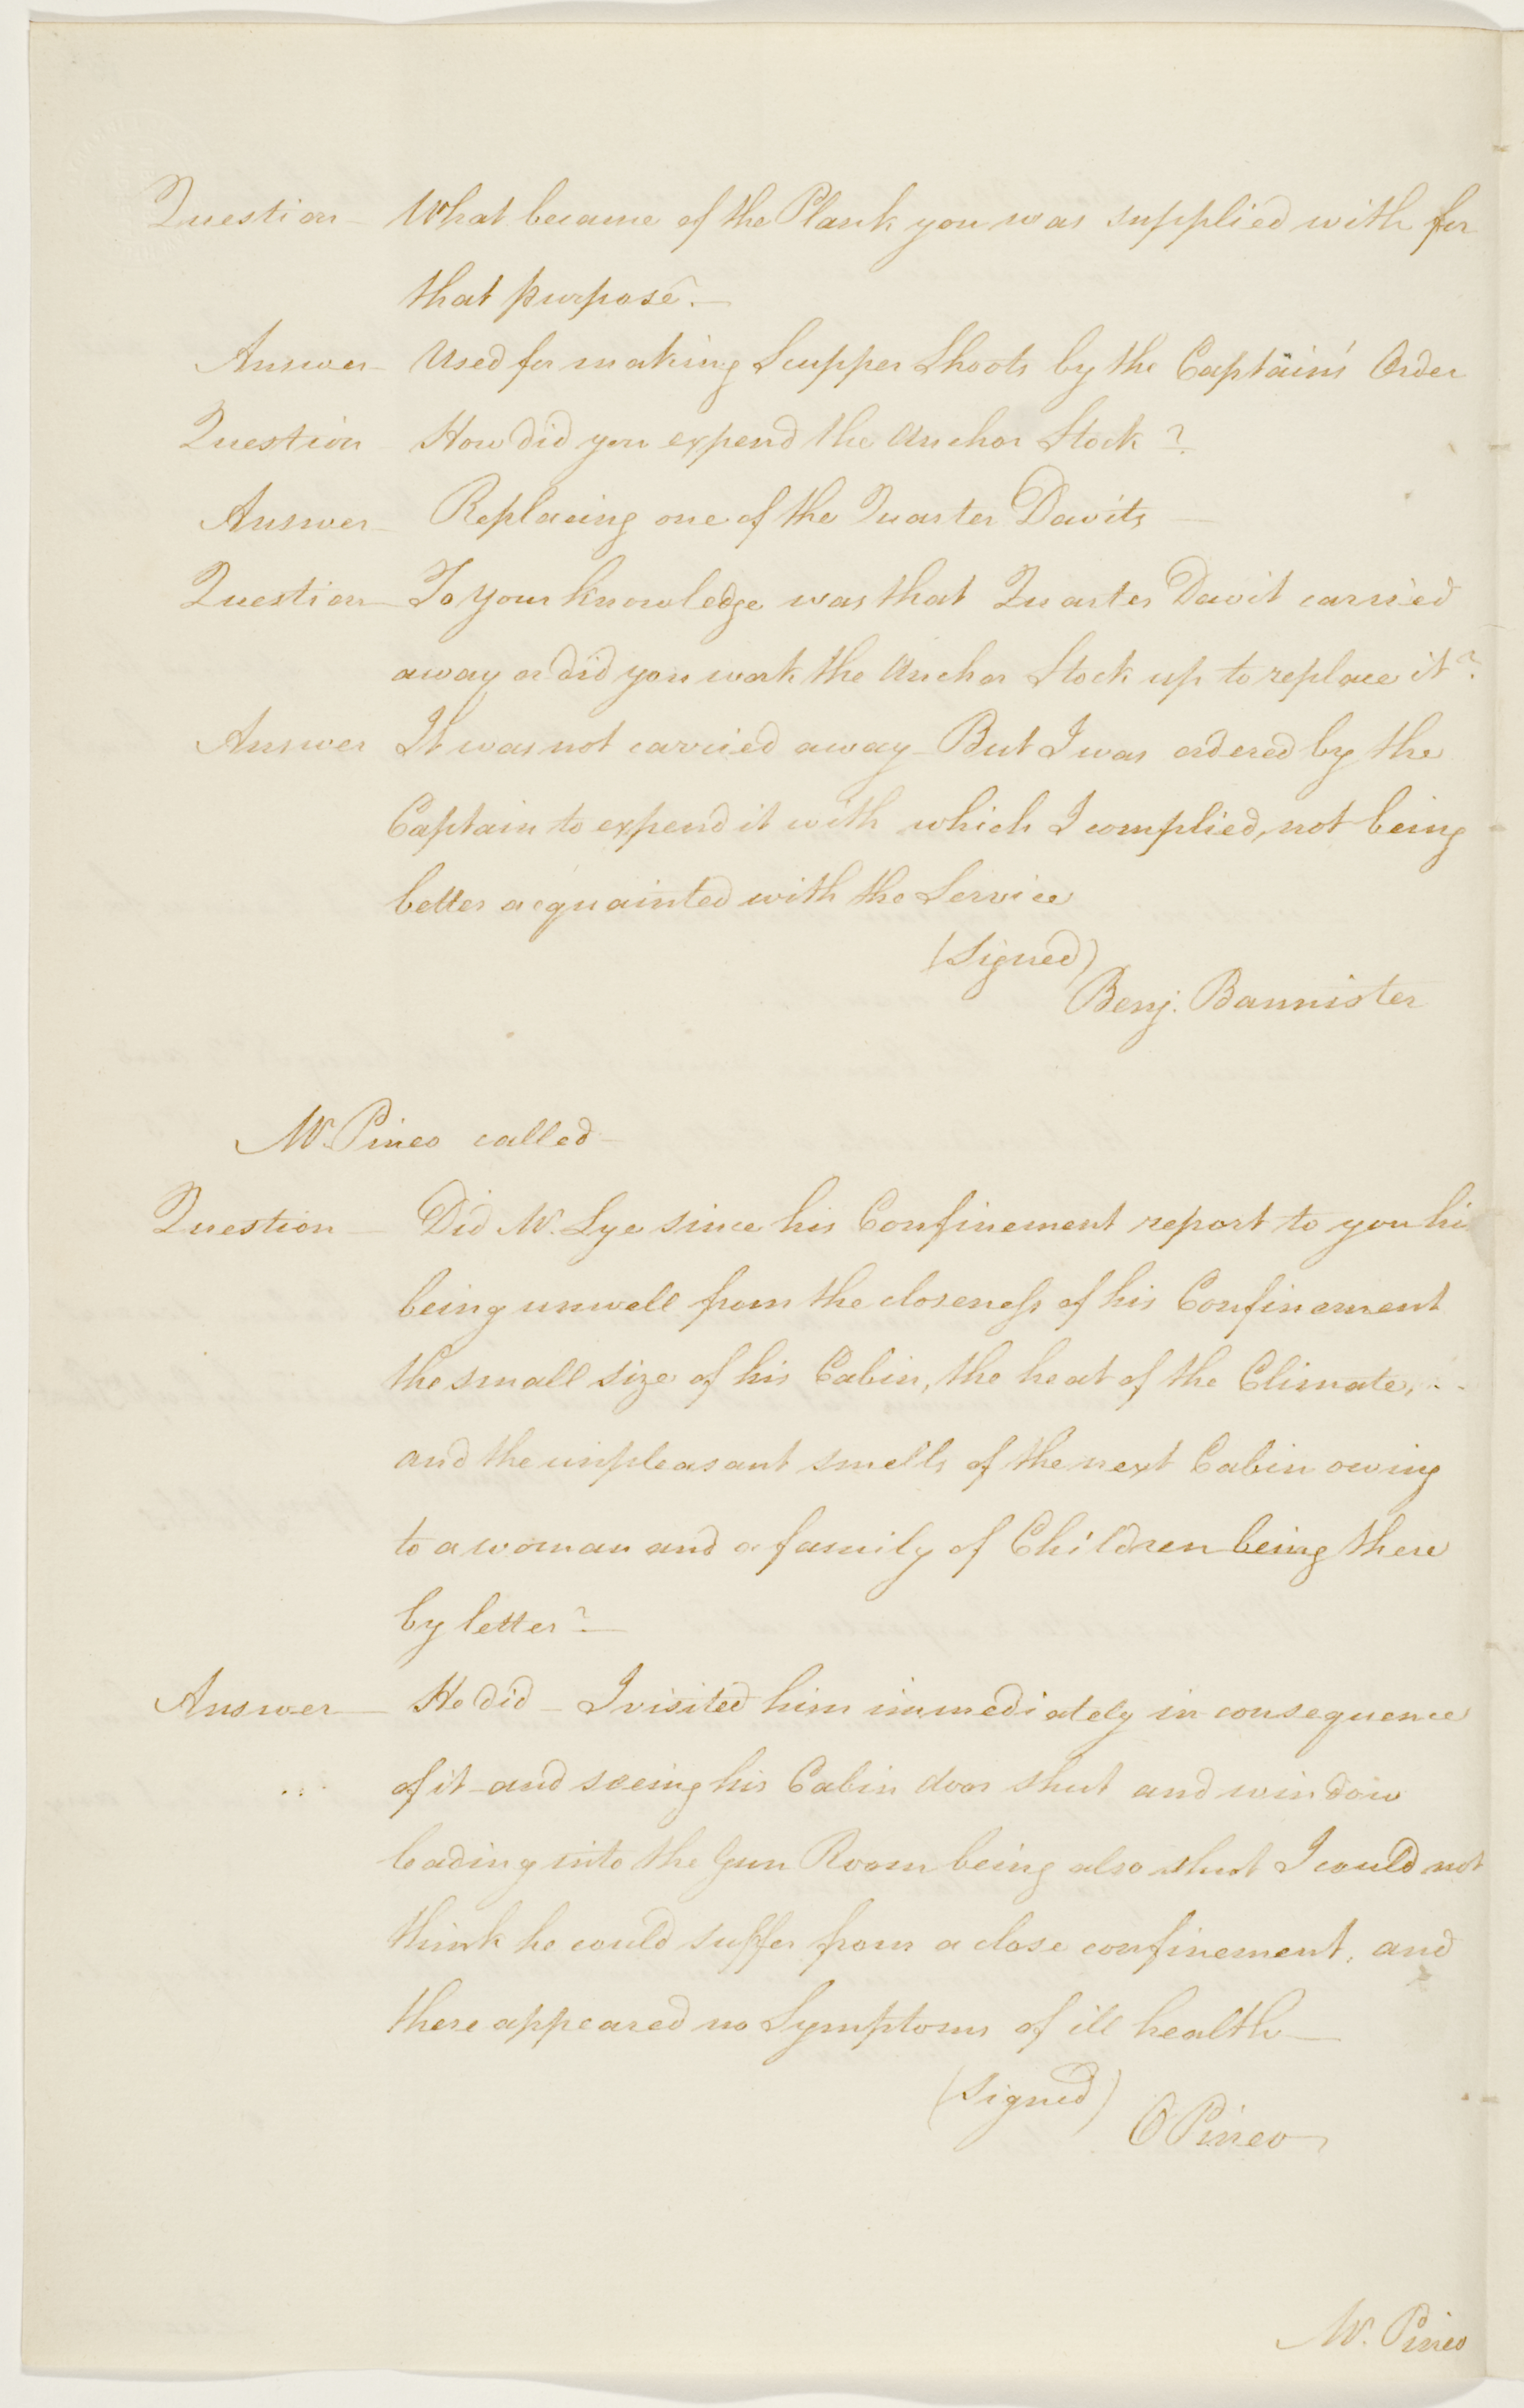 Question – What became of the Plank you was supplied with for
that purpose. –
Answer – Used for making Scupper Shoots by the Captain's Order
Question – How did you expend the Anchor Stock?
Answer – Replacing one of the Quarter Davits –
Question – To your knowledge was that Quarter Davit carried
away or did you work the Anchor Stock up to replace it?
Answer It was not carried away – But I was ordered by the
Captain to expend it with which I complied, not being
better acquainted with the Service
(Signed)
Benj. Bannister
Mr. Pineo called –
Question – Did Mr. Lye since his Confinement report to you hi
being unwell from the closeness of his Confinement
the small size of his Cabin, the heat of the Climate, - -
and the unpleasant smells of the next Cabin owing
to a woman and a family of Children being there
by letter? –
Answer – He did – I visited him immediately in consequence
of it – and seeing his Cabin door shut and window
leading into the Gun Room being also shut I could not
think he could suffer from a close confinement, and
there appeared no Symptoms of ill health –
(Signed)
O Pineo
Mr. Pineo